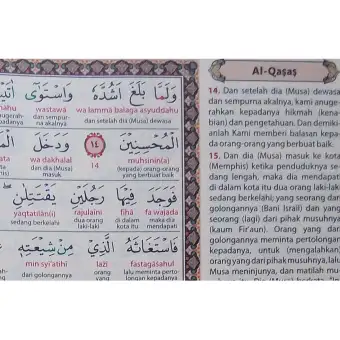 وَلَمَّا بَلَغَ اَشُدَّهٗ وَاسْتَوٰٓى
wastawā wa lammā balaga asyuddahu
dan sempur-na akalnya dan setelah dia (Musa) dewasa
الْمُحْسِنِيْنَ ١٤ وَدَخَلَ
wa dakhala 14 muhsinīn(a)
dan dia (Musa) masuk (kepada) orang-orang yang berbuat baik
فَوَجَدَ فِيْهَا رَجُلَيْنِ يَقْتَتِلٰنِ
yaqtatilā(ni) rajulaini fīhā fa wajada
sedang berkelahi dua orang laki-laki di dalam kota itu maka dia mendapati
فَاسْتَغَاثَهُ الَّذِيْ مِنْ شِيْعَتِهٖ
min syī'atihī lażī fastagāṡahul
dari golongannya orang yang lalu meminta perto-longan kepadanya
Al-Qaṣaṣ
14. Dan setelah dia (Musa) dewasa
dan sempurna akalnya, kami anuge-
rahkan kepadanya hikmah (kena-
bian) dan pengetahuan. Dan demiki-
anlah Kami memberi balasan kepa-
da orang-orang yang berbuat baik.
15. Dan dia (Musa) masuk ke kota
(Memphis) ketika penduduknya se-
dang lengah, maka dia mendapati
di dalam kota itu dua orang laki-laki
sedang berkelahi; yang seorang dari
golongannya (Bani Israil) dan yang
seorang (lagi) dari pihak musuhnya
(kaum Fir'aun). Orang yang dari
golongannya meminta pertolongan
kepadanya, untuk (mengalahkan)
orang yang dari pihak musuhnya, lalu
Musa meninjunya, dan matilah mu-